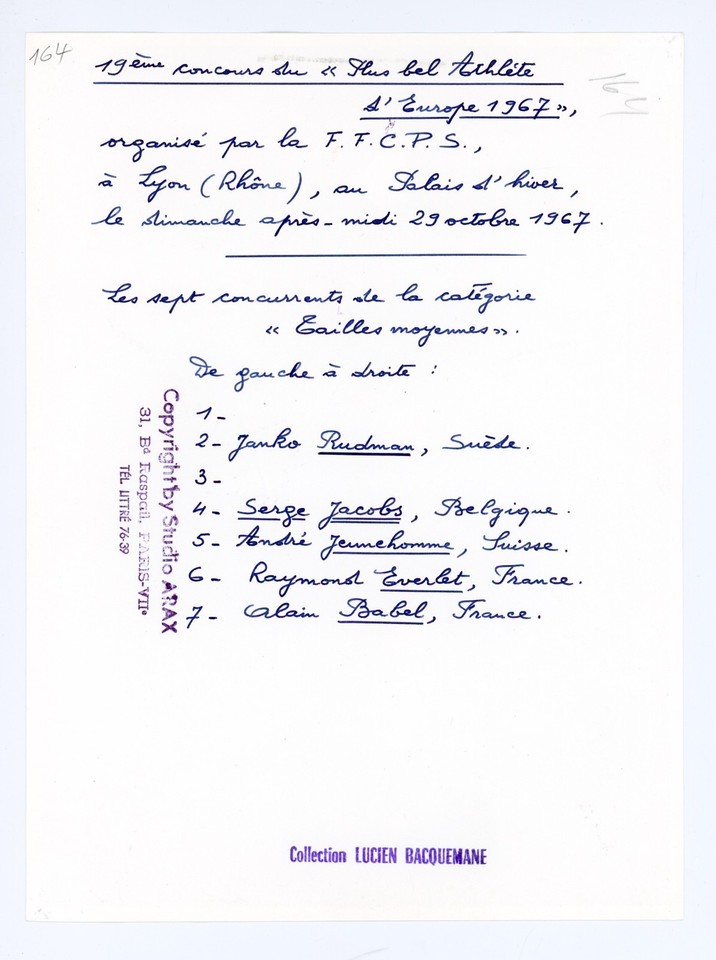 164
19ème concours du « Plus bel Athlète
d'Europe 1967 »,
organisé par la F. F. C. P. S.,
à Lyon (Rhône), au Palais d'hiver,
le dimanche après-midi 29 octobre 1967.
Les sept concurrents de la catégorie
« Tailles moyennes ».
De gauche à droite :
1-
2- Janko Rudman, Suède.
3-
4- Serge Jacobs, Belgique.
5- André Jeunehomme, Suisse.
6- Raymond Everlet, France.
7- Alain Babel, France.
Copyright by Studio ARAX
31, Bd Raspail, PARIS-VIIe
TÉL. LITTRÉ 76-39
Collection LUCIEN BACQUEMANE